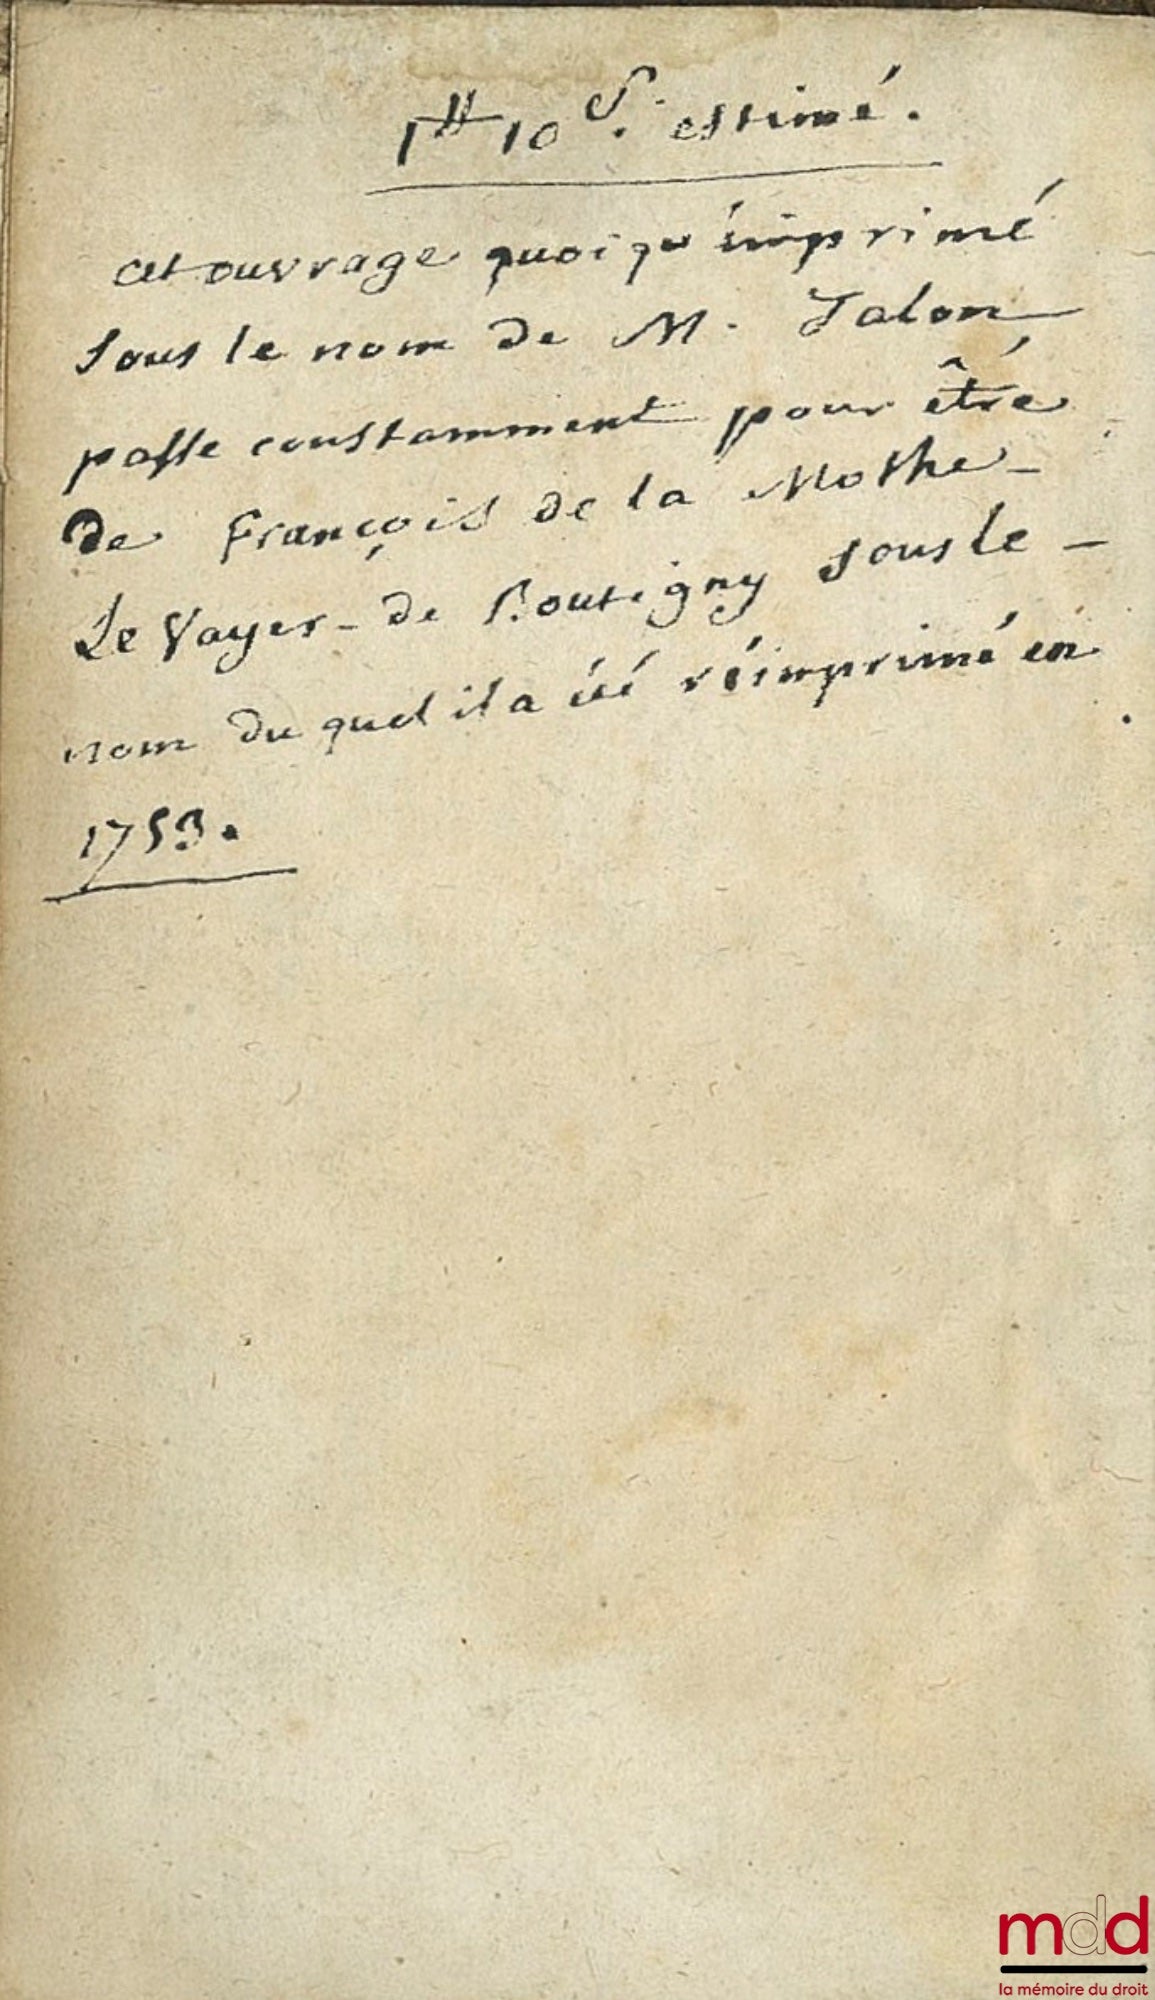 1₶ 10 s. estimé.
cet ouvrage quoiqu'imprimé
sous le nom de M. Talon
passe constamment pour être
de François de la Mothe -
Le Vayer - de Boutigny sous le -
nom du quel il a été réimprimé en
1753.
mdd
la mémoire du droit